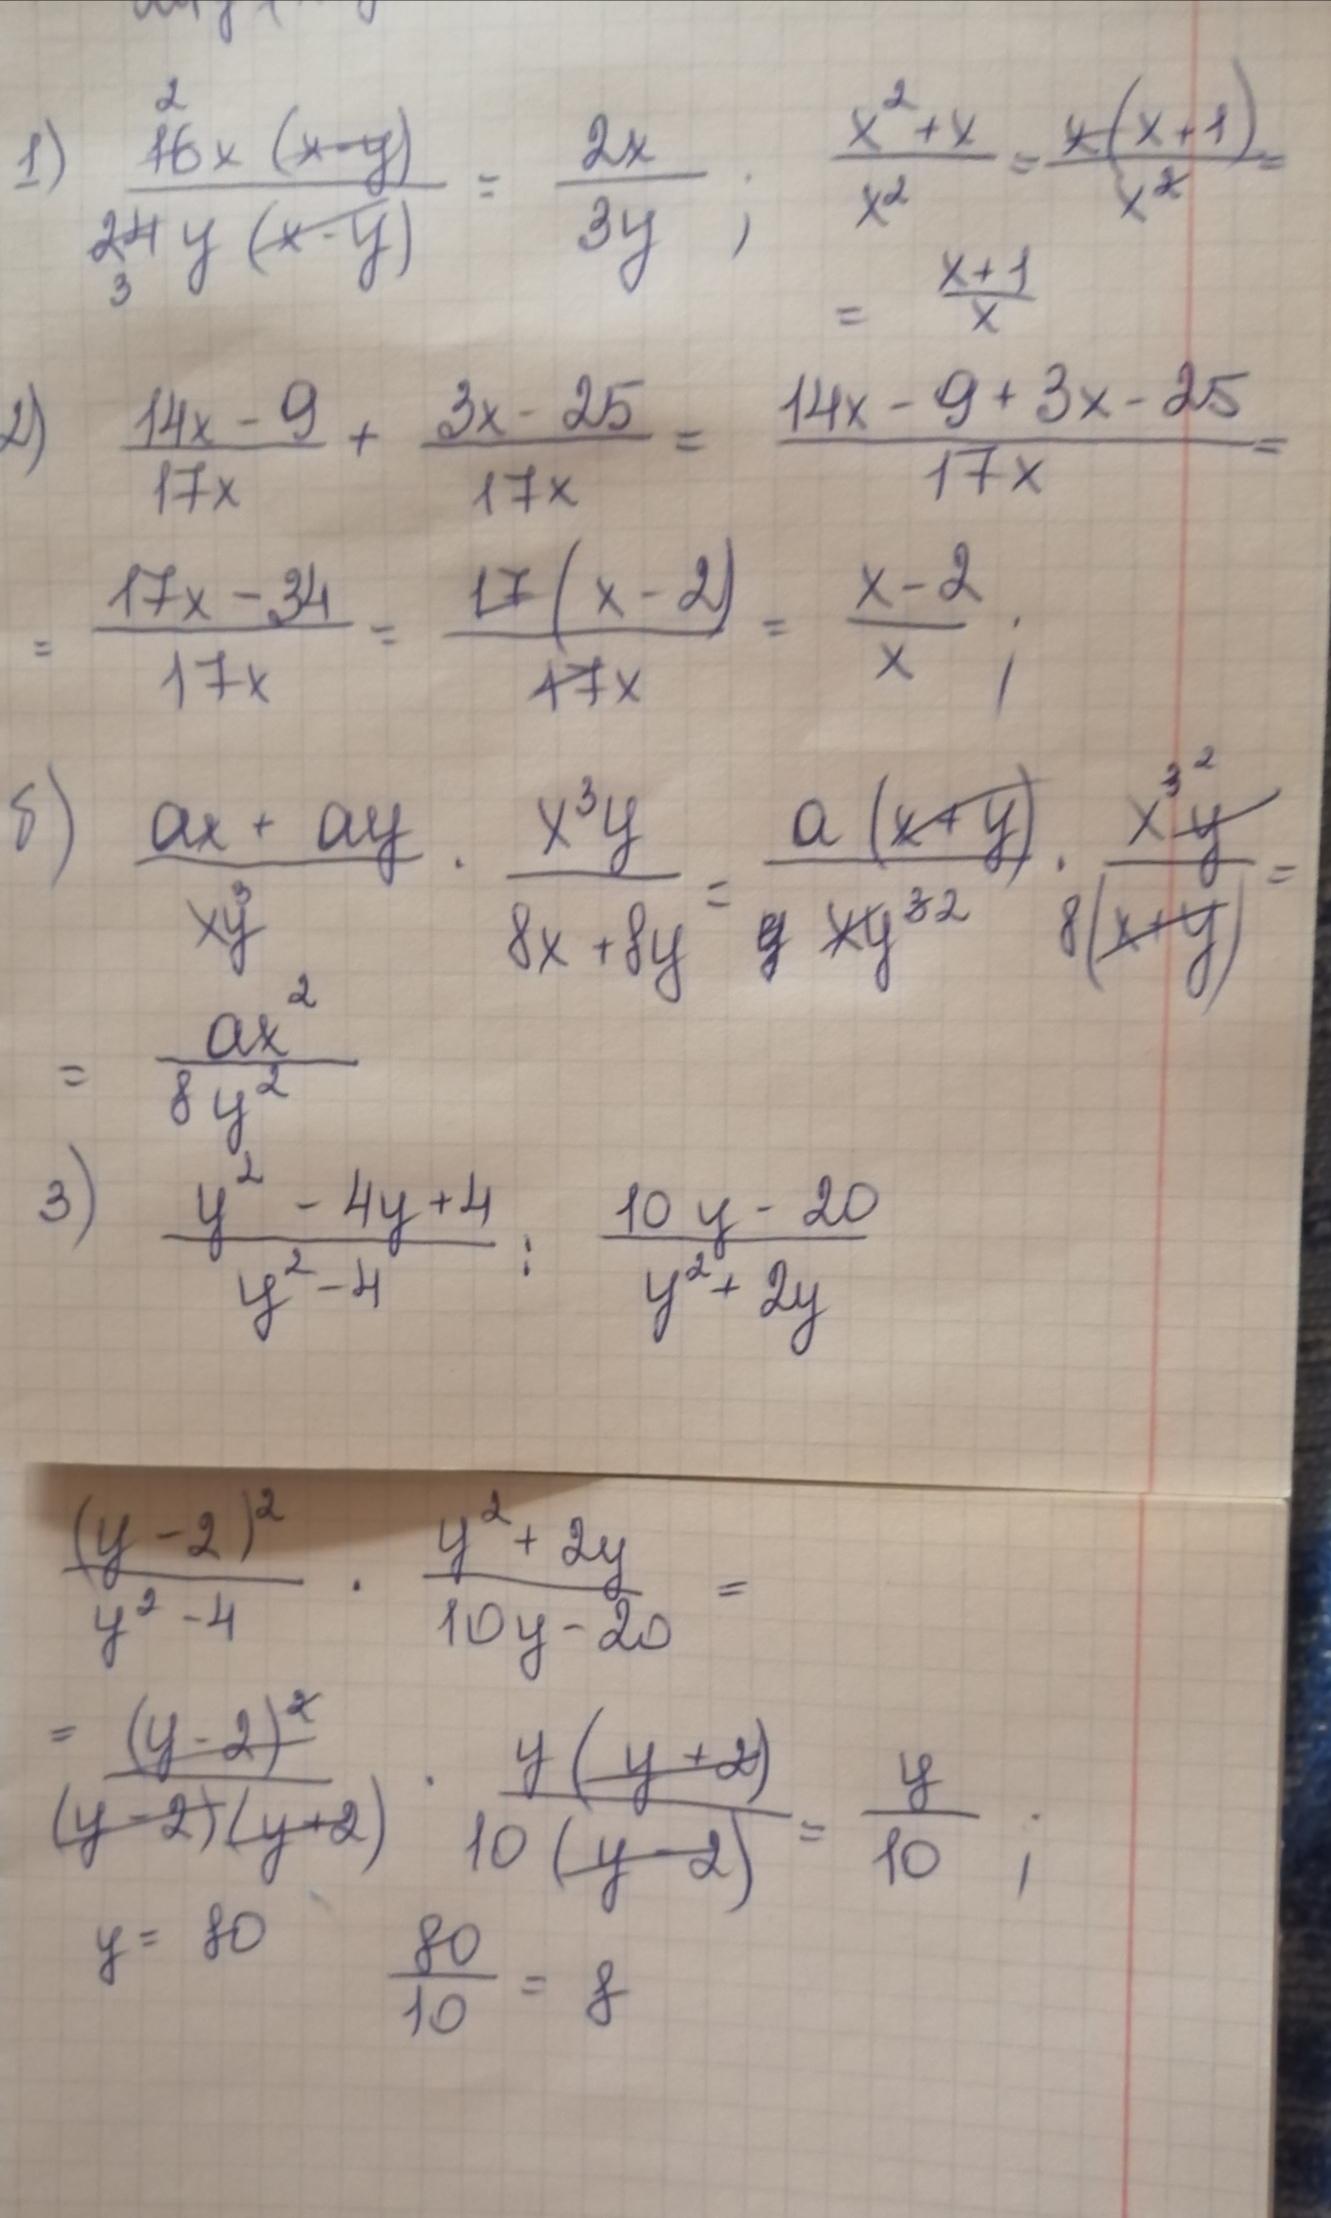 1) 16x (x-y) / 24y (x-y) = 2x / 3y ; x²+x / x² = x(x+1) / x² =
2
3
= x+1 / x
2) 14x - 9 / 17x + 3x - 25 / 17x = 14x - 9 + 3x - 25 / 17x =
= 17x - 34 / 17x = 17(x - 2) / 17x = x - 2 / x ;
б) ax + ay / xy³ · x³y / 8x + 8y = a(x+y) / xy³ 2 · x³ 2 y / 8(x+y) =
= ax² / 8y²
3) y² - 4y + 4 / y² - 4 : 10y - 20 / y² + 2y
(y - 2)² / y² - 4 · y² + 2y / 10y - 20 =
= (y - 2)² / (y - 2)(y + 2) · y(y + 2) / 10(y - 2) = y / 10 ;
y = 80 80 / 10 = 8